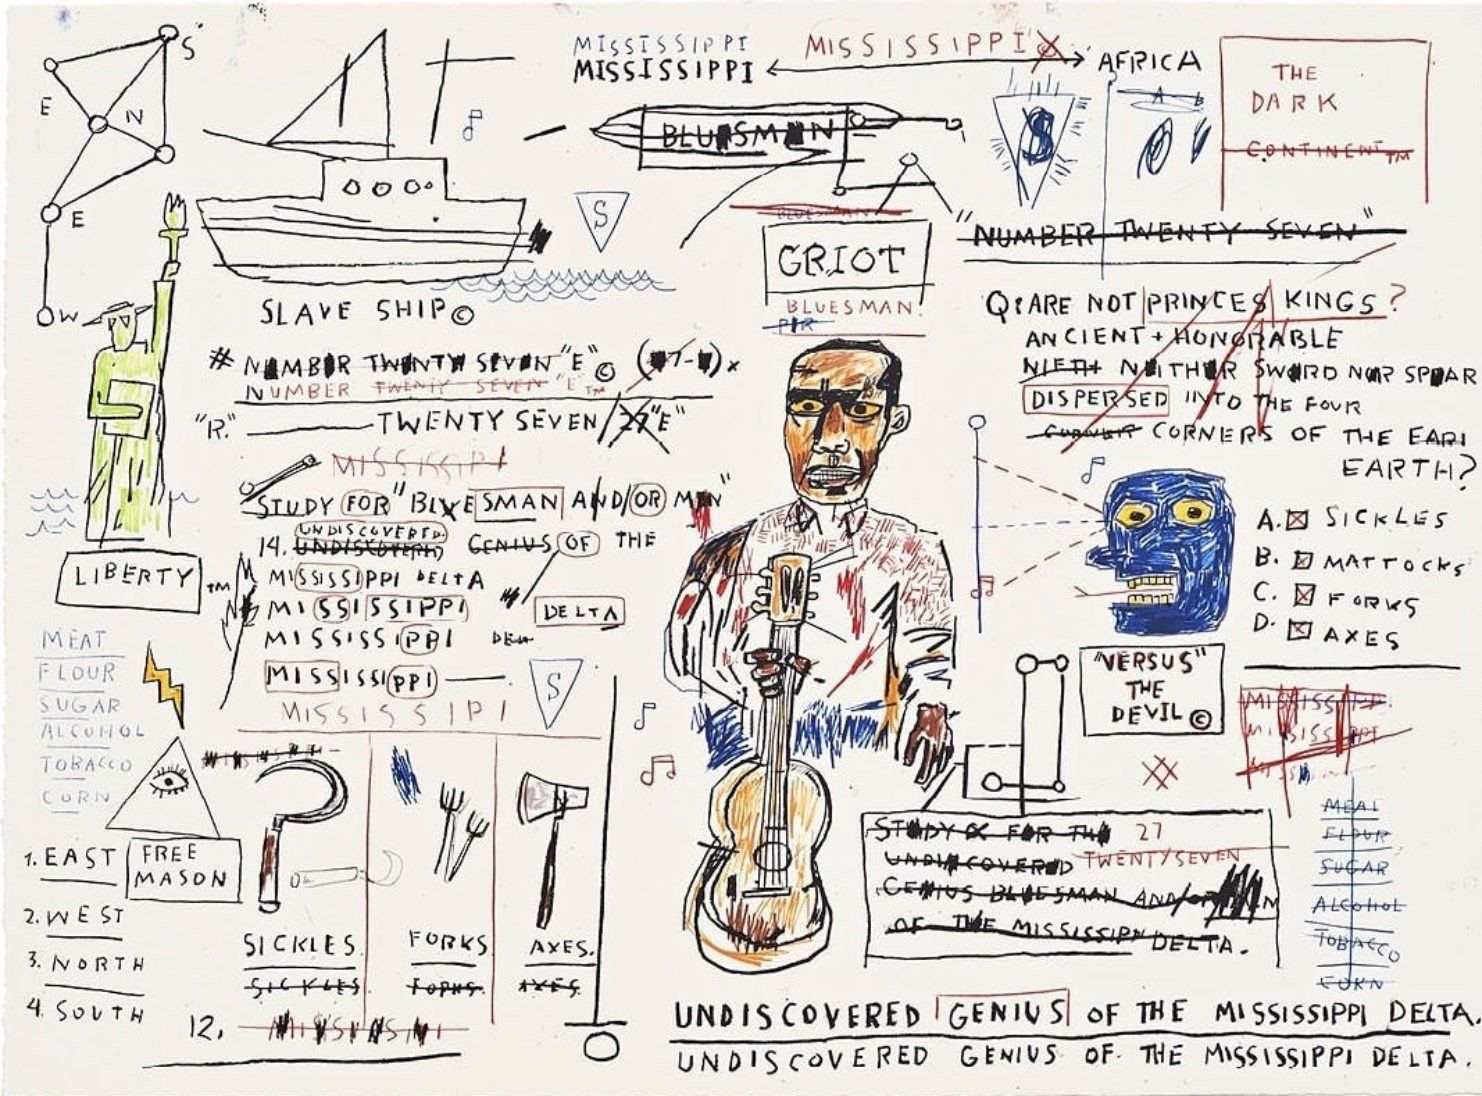 S
E
N
E
W
MISSISSIPPI
MISSISSIPPI
MISSISSIPPI
AFRICA
BLUESMAN
S
A B
THE
DARK
CONTINENT TM
S
BLUESMAN
GRIOT
BLUESMAN.
"NUMBER TWENTY SEVEN"
SLAVE SHIP ©
# NUMBER TWENTY SEVEN "E" ©
NUMBER TWENTY SEVEN "E" TM
"R." TWENTY SEVEN / 27 "E"
Q: ARE NOT PRINCES KINGS?
ANCIENT + HONORABLE
NIETH NEITHER SWORD NOR SPEAR
DISPERSED INTO THE FOUR
CORNERS OF THE EARI
EARTH?
MISSISSIPI
STUDY FOR "BLUESMAN AND/OR MEN"
UNDISCOVERED
14. UNDISCOVERED GENIUS OF THE
MISSISSIPPI DELTA
MISSISSIPPI
DELTA
MISSISSIPPI
MISSISSIPPI
S
MISSISSIPI
LIBERTY TM
MEAT
FLOUR
SUGAR
ALCOHOL
TOBACCO
CORN
FREE
MASON
1. EAST
2. WEST
3. NORTH
4. SOUTH
SICKLES.
SICKLES
FORKS
FORKS.
AXES.
AXES.
12.
A. SICKLES
B. MATTOCKS
C. FORKS
D. AXES
"VERSUS"
THE
DEVIL ©
MISSISSIPPI
MISSISSIPPI
STUDY FOR THE 27
UNDISCOVERED TWENTYSEVEN
GENIUS BLUESMAN AND/OR
OF THE MISSISSIPPI DELTA.
MEAT
FLOUR
SUGAR
ALCOHOL
TOBACCO
CORN
UNDISCOVERED GENIUS OF THE MISSISSIPPI DELTA.
UNDISCOVERED GENIUS OF THE MISSISSIPPI DELTA.